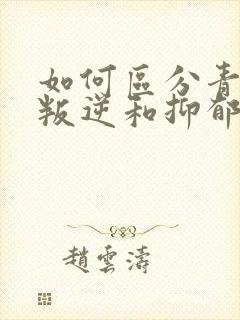 如何區分青
叛逆和抑郁
趙雲濤